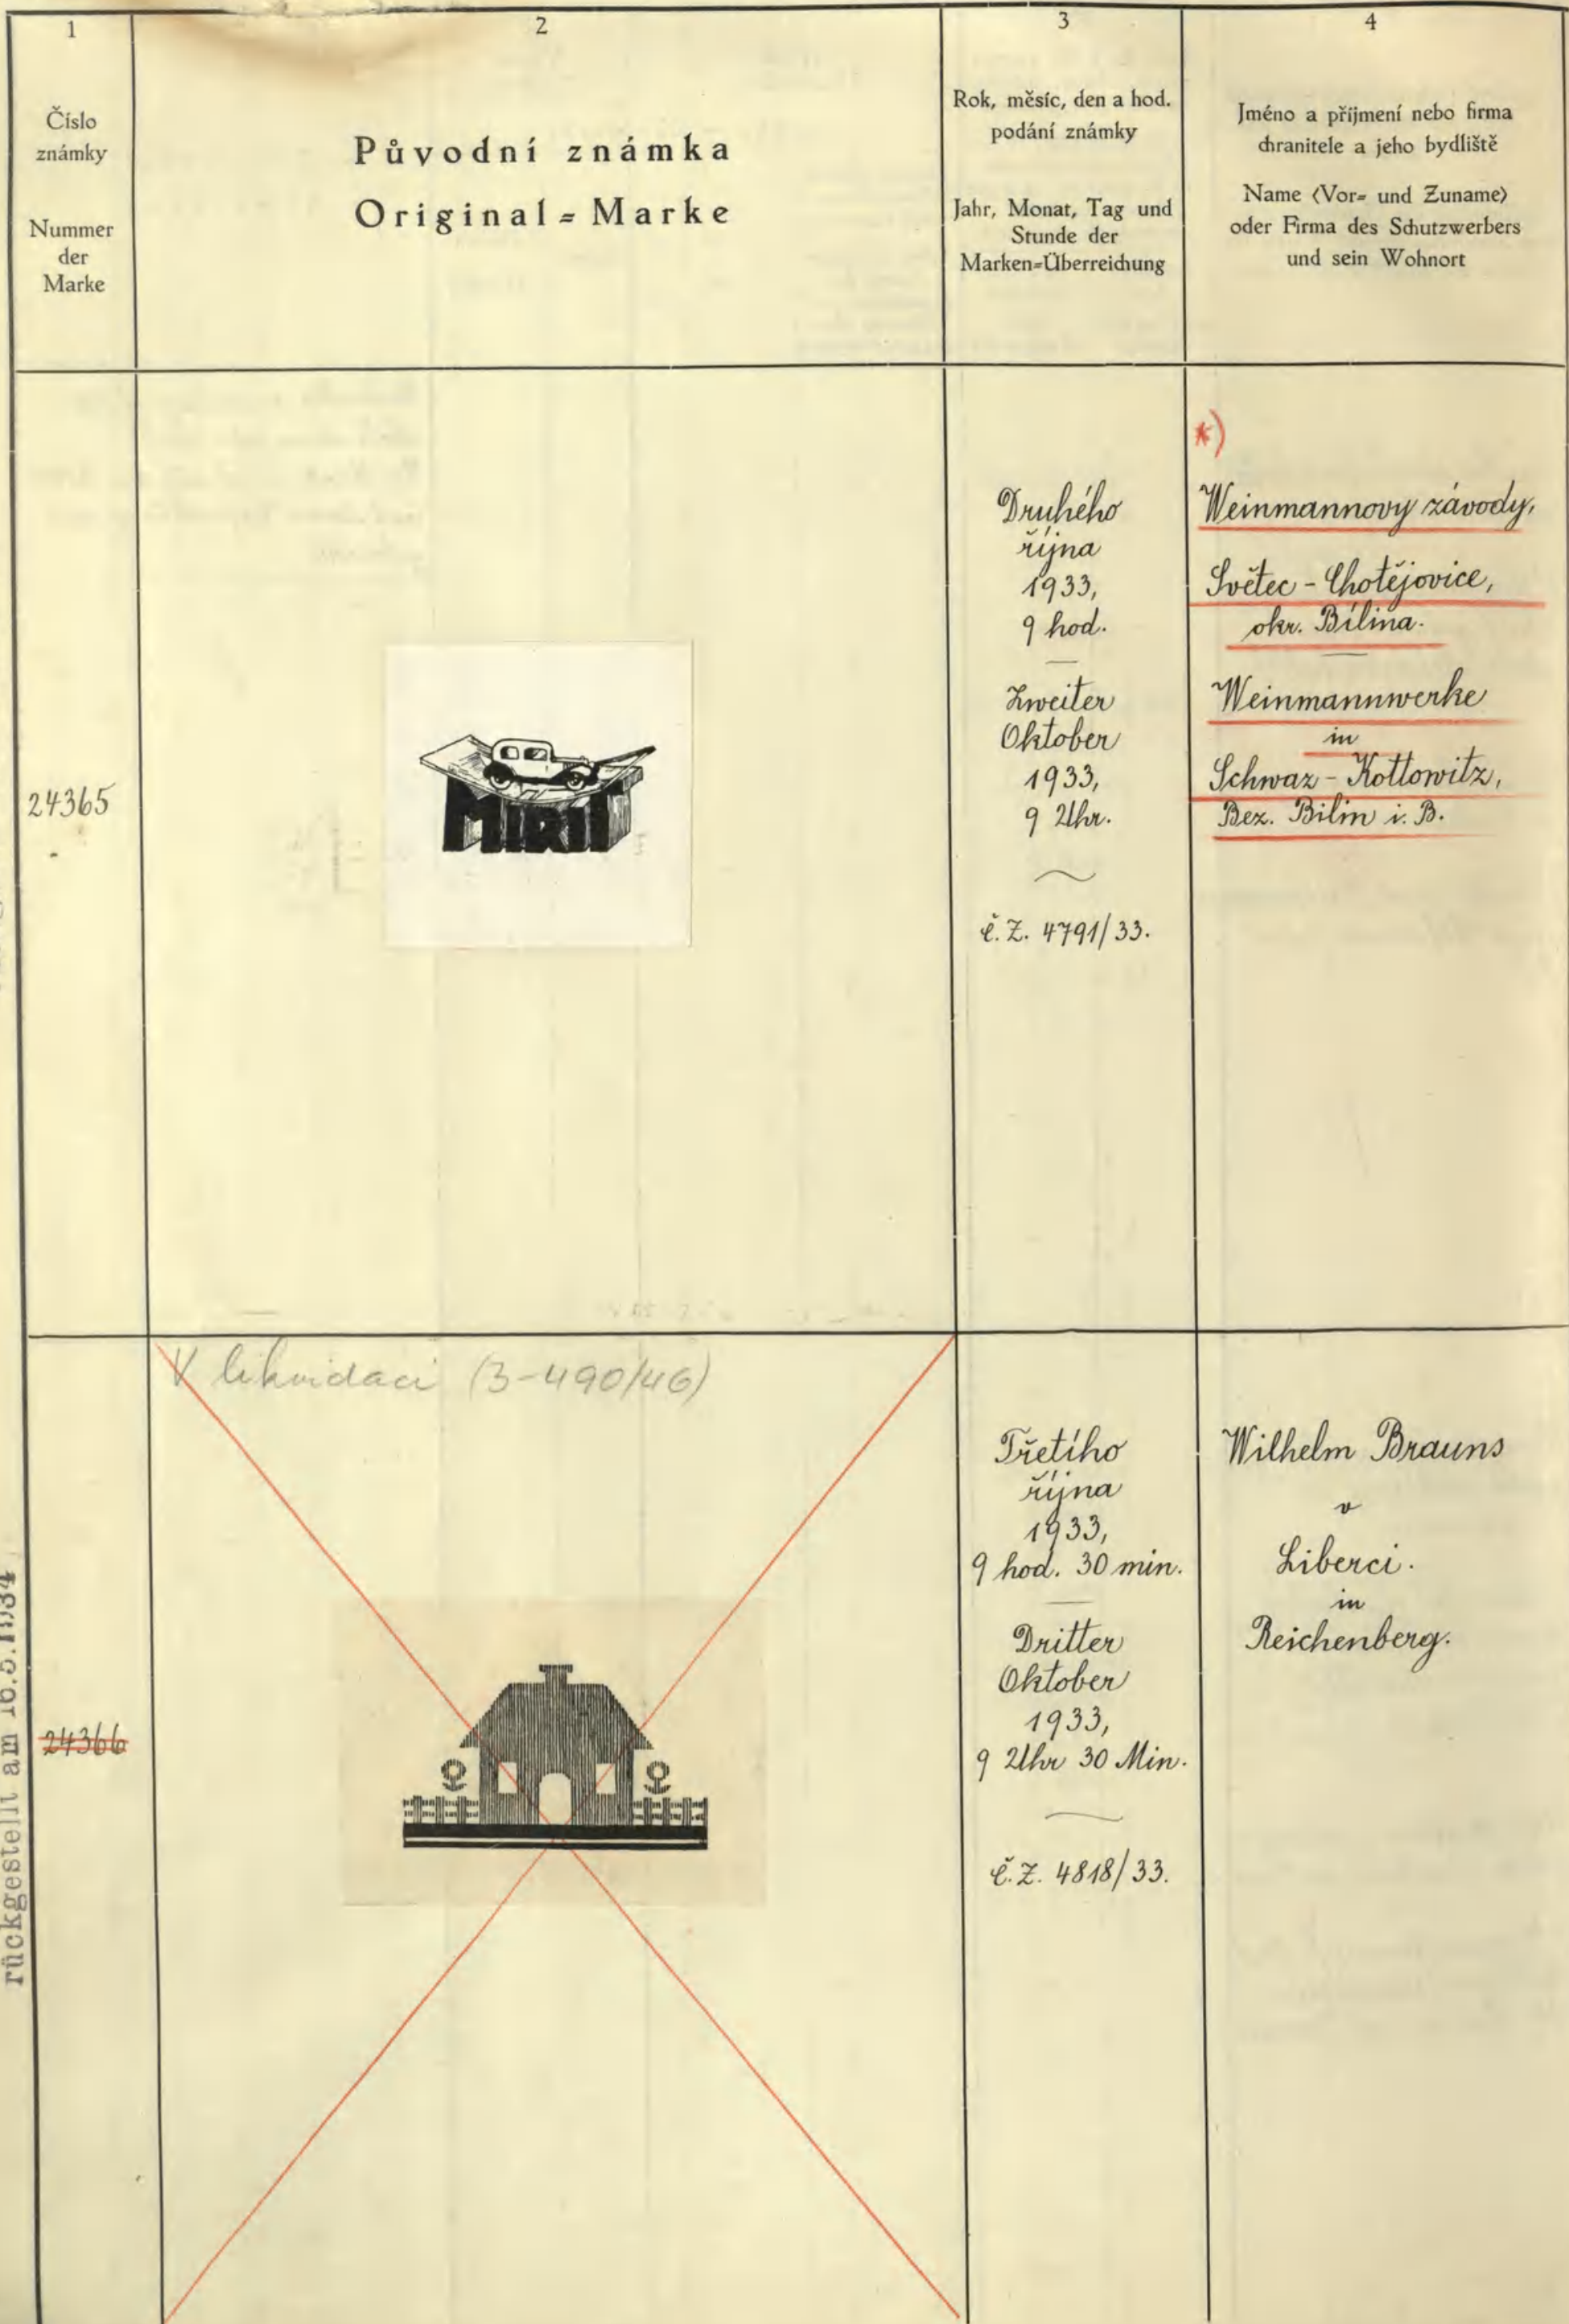 1
Číslo
známky
Nummer
der
Marke
2
Původní známka
Original=Marke
3
Rok, měsíc, den a hod.
podání známky
Jahr, Monat, Tag und
Stunde der
Marken=Überreichung
4
Jméno a příjmení nebo firma
chranitele a jeho bydliště
Name (Vor= und Zuname)
oder Firma des Schutzwerbers
und sein Wohnort
24365
MIRIT
Druhého
října
1933,
9 hod.
Zweiter
Oktober
1933,
9 Uhr.
č. Z. 4791/33.
*)
Weinmannovy závody,
Světec - Chotějovice,
okr. Bílina.
Weinmannwerke
in
Schwaz - Kottowitz,
Bez. Bilin i. B.
24366
V likvidaci (3-490/46)
Třetího
října
1933,
9 hod. 30 min.
Dritter
Oktober
1933,
9 Uhr 30 Min.
č. Z. 4818/33.
Wilhelm Brauns
v
Liberci.
in
Reichenberg.
rückgestellt am 16.5.1934